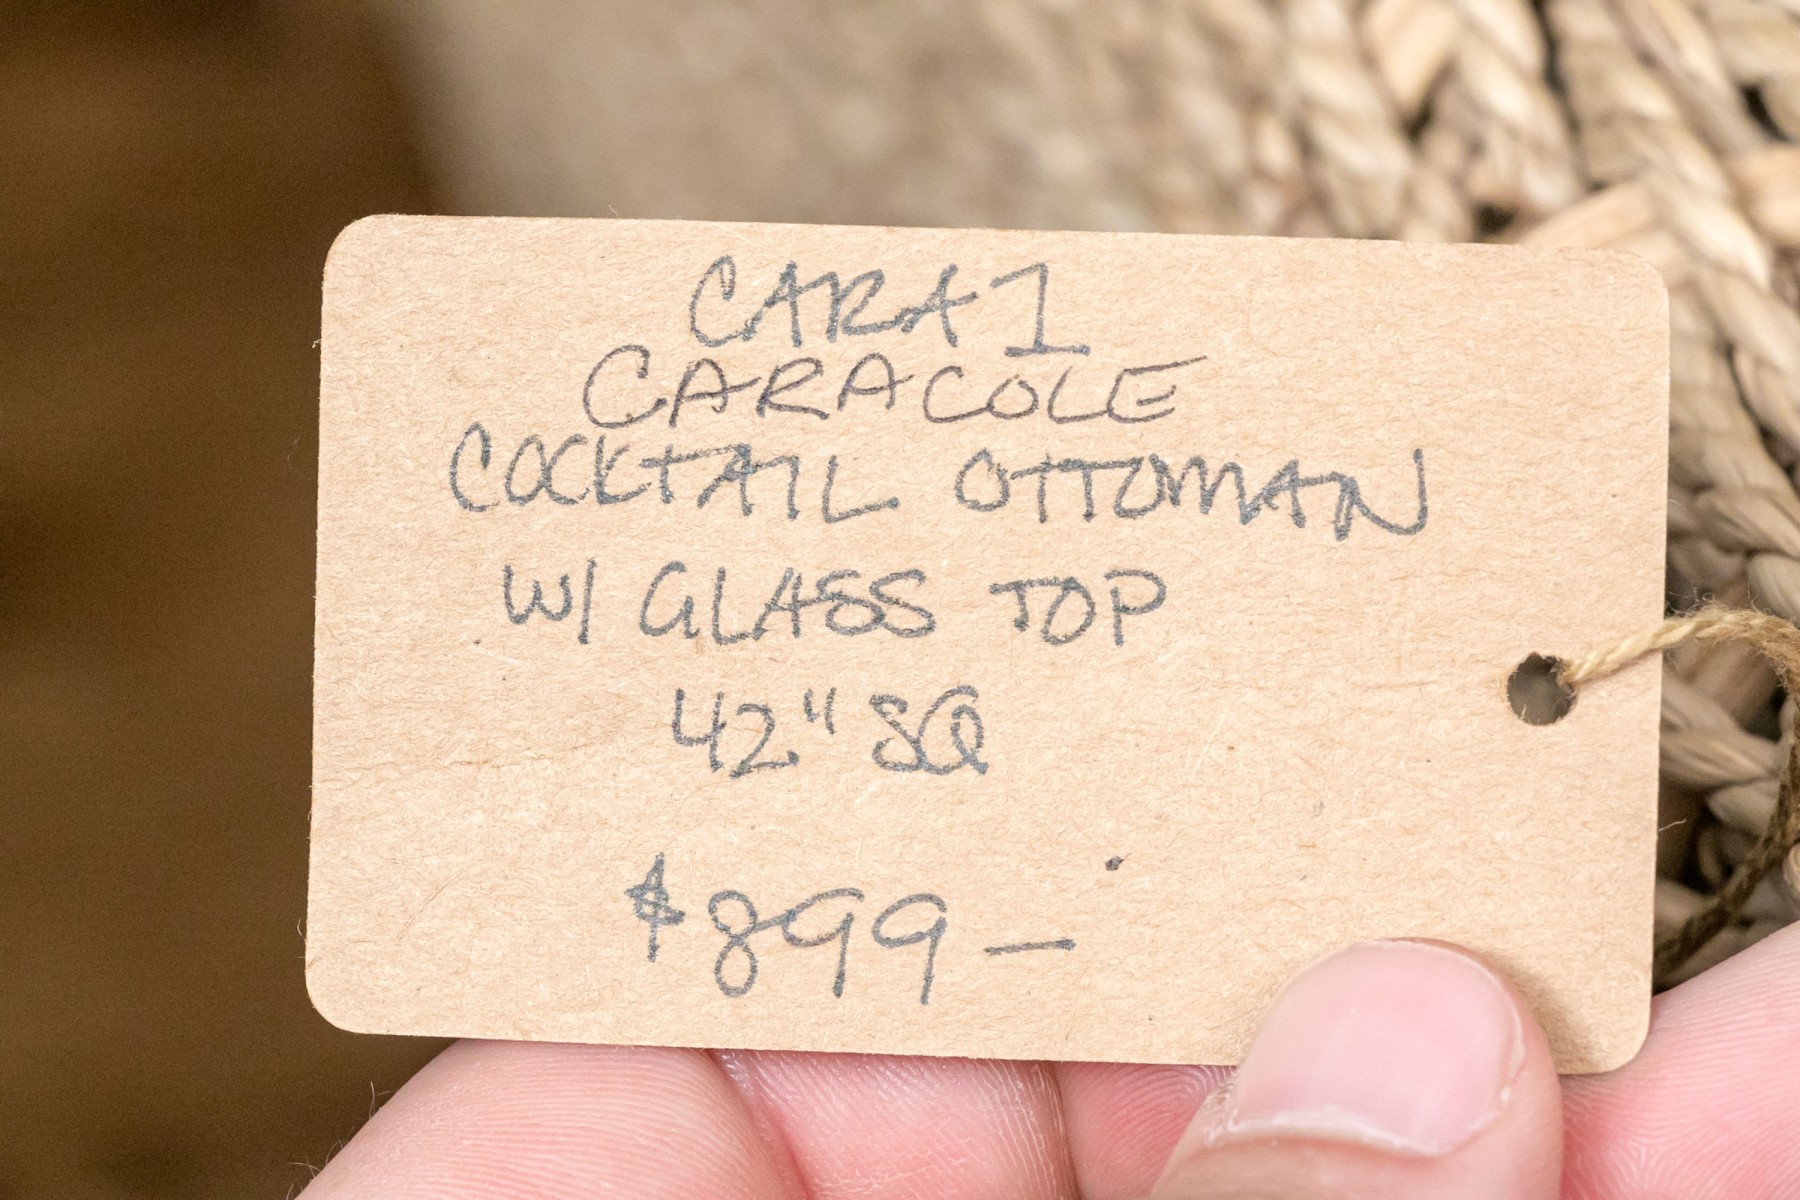 CARA1
CARACOLE
COCKTAIL OTTOMAN
W/ GLASS TOP
42" SQ
$899—